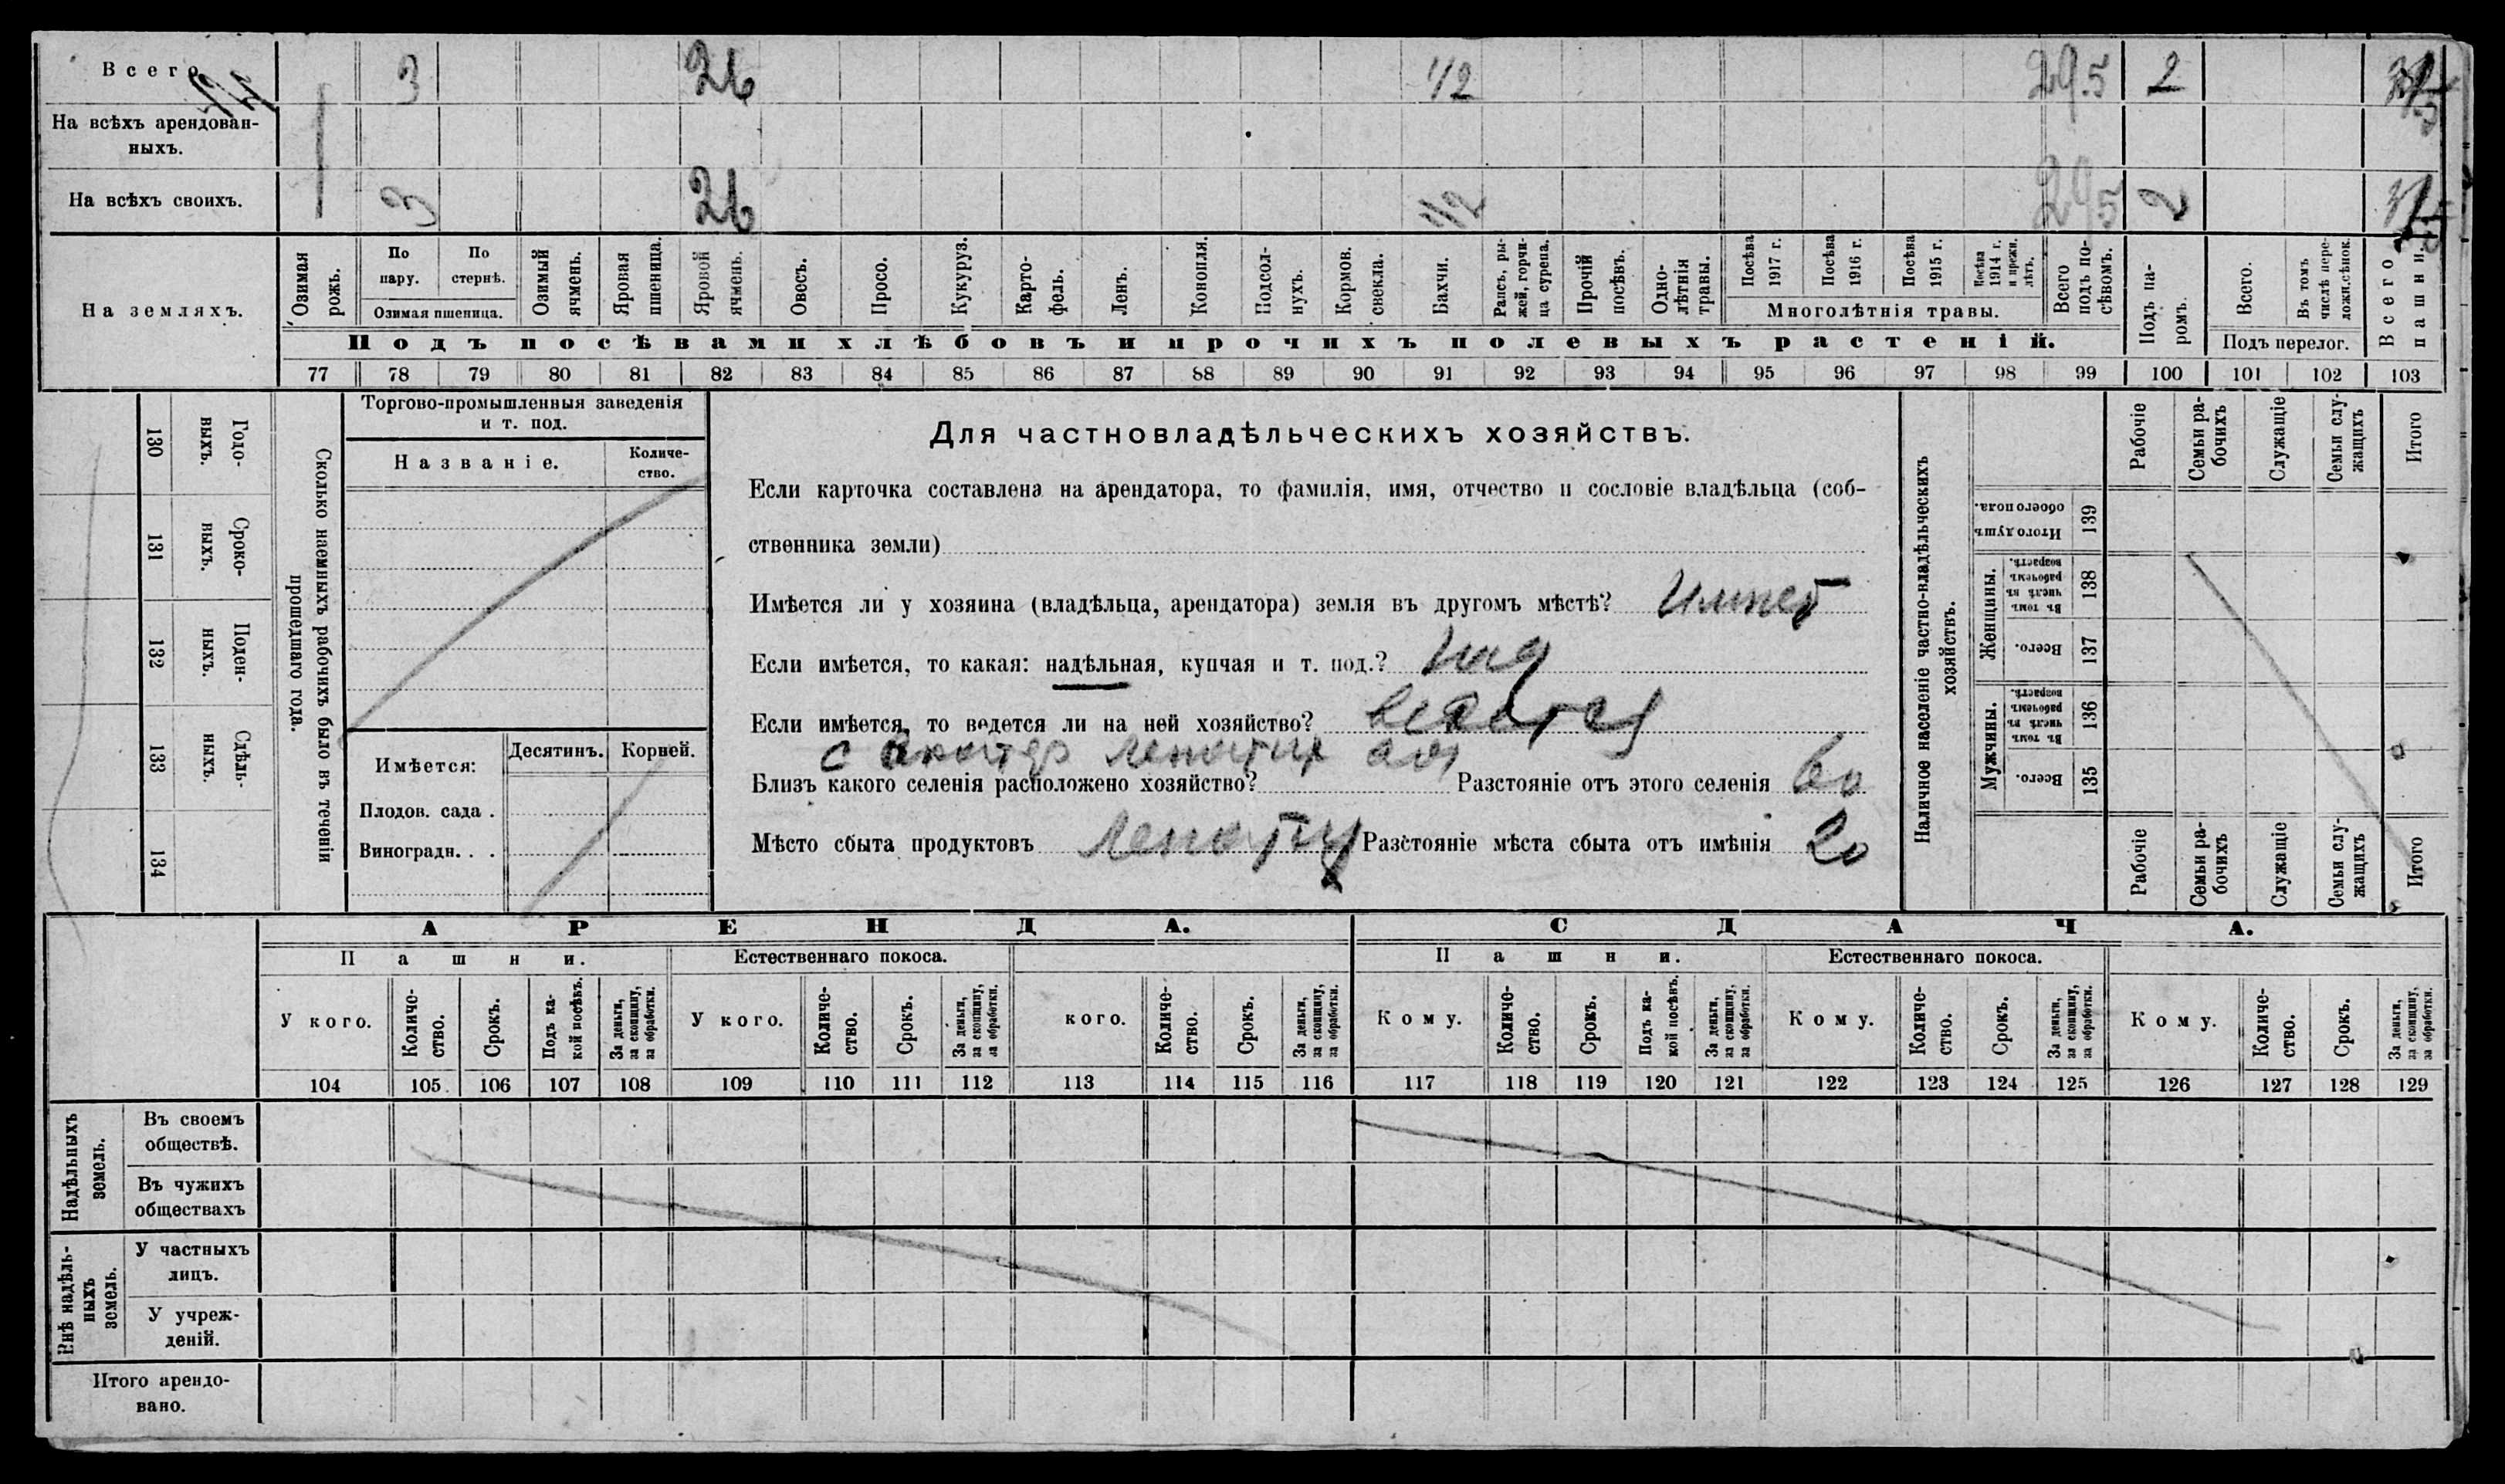 Всего 3 26 1/2 29.5 2
На всѣхъ арендован-
ныхъ.
На всѣхъ своихъ. 3 26 1/2 29,5 2
На земляхъ.
Озимая рожь.
По пару.
По стернѣ.
Озимая пшеница.
Озимый ячмень.
Яровая пшеница.
Яровой ячмень.
Овесъ.
Просо.
Кукуруз.
Карто-
фель.
Ленъ.
Конопля.
Подсол-
нухъ.
Кормов.
свекла.
Бахчи.
Рапсъ, ры-
жей, горчи-
ца сурепа.
Прочій
посѣвъ.
Одно-
лѣтнія
травы.
Посѣва 1917 г.
Посѣва 1916 г.
Посѣва 1915 г.
Посѣва 1914 г. и прежн. лѣтъ.
Многолѣтнія травы.
Всего
подъ по-
сѣвомъ.
Подъ посѣвами хлѣбовъ и прочихъ полевыхъ растеній.
Подъ па-
ромъ.
Всего.
Въ томъ
числѣ пере-
ложн.сѣнок.
Подъ перелог.
Всего пашни.
77 78 79 80 81 82 83 84 85 86 87 88 89 90 91 92 93 94 95 96 97 98 99 100 101 102 103
130 Годо-
выхъ.
131 Сроко-
выхъ.
132 Поден-
ныхъ.
133 Сдѣль-
ныхъ.
134
Сколько наемныхъ рабочихъ было въ теченіи
прошедшаго года.
Торгово-промышленныя заведенія
и т. под.
Названіе.
Количе-
ство.
Имѣется: Десятинъ. Корней.
Плодов. сада .
Виноградн. . .
Для частновладѣльческихъ хозяйствъ.
Если карточка составлена на арендатора, то фамилія, имя, отчество и сословіе владѣльца (соб-
ственника земли)
Имѣется ли у хозяина (владѣльца, арендатора) земля въ другомъ мѣстѣ?
Если имѣется, то какая: надѣльная, купчая и т. под.? над
Если имѣется, то ведется ли на ней хозяйство? ведется
Близъ какого селенія расположено хозяйство? Разстояніе отъ этого селенія
Мѣсто сбыта продуктовъ Разстояніе мѣста сбыта отъ имѣнія 20
Наличное населеніе частно-владѣльческихъ
хозяйствъ.
Рабочіе
Семьи ра-
бочихъ
Служащіе
Семьи слу-
жащихъ
Итого
Итого душъ
обоего пола.
139
Женщины.
Въ томъ
числѣ въ
рабочемъ
возрастѣ.
138
Всего.
137
Мужчины.
Въ томъ
числѣ въ
рабочемъ
возрастѣ.
136
Всего.
135
Рабочіе
Семьи ра-
бочихъ
Служащіе
Семьи слу-
жащихъ
Итого
АРЕНДА. СДАЧА.
Пашни. Естественнаго покоса. Пашни. Естественнаго покоса.
У кого.
Количе-
ство.
Срокъ.
Подъ ка-
кой посѣвъ.
За деньги,
за скопщину,
за обработки.
У кого.
Количе-
ство.
Срокъ.
За деньги,
за скопщину,
за обработки.
кого.
Количе-
ство.
Срокъ.
За деньги,
за скопщину,
за обработки.
Кому.
Количе-
ство.
Срокъ.
Подъ ка-
кой посѣвъ.
За деньги,
за скопщину,
за обработки.
Кому.
Количе-
ство.
Срокъ.
За деньги,
за скопщину,
за обработки.
Кому.
Количе-
ство.
Срокъ.
За деньги,
за скопщину,
за обработки.
104 105 106 107 108 109 110 111 112 113 114 115 116 117 118 119 120 121 122 123 124 125 126 127 128 129
Надѣльныхъ
земель.
Въ своемъ
обществѣ.
Въ чужихъ
обществахъ
Внѣ надѣль-
ныхъ
земель.
У частныхъ
лицъ.
У учреж-
деній.
Итого арендо-
вано.